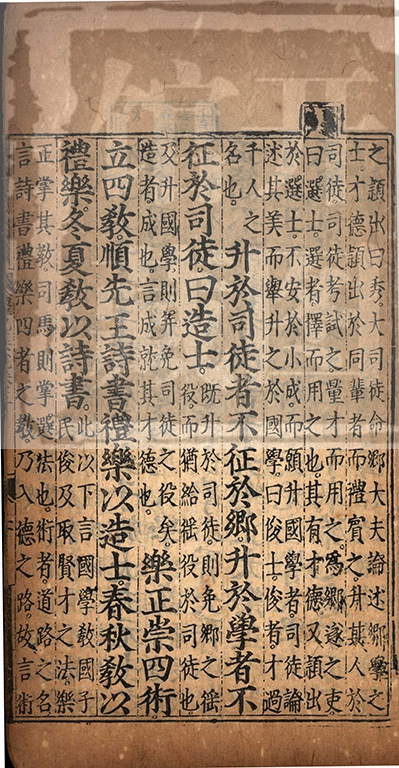 之穎出曰秀。大司徒命鄉大夫論述鄉學之
士才德穎出於同輩者而禮賓之。升其人於
司徒。司徒考試之。量才而用之。爲鄉遂之吏。
曰選士。選者。擇而用之也。其有才德又穎出
於選士。不安於小成而願升國學者。司徒論
述其美而舉升之於國學。曰俊士。俊者。才過
千人之
名也。
升於司徒者不征於鄉升於學者不
征於司徒。曰造士。
既升於司徒。則免鄉之徭
役。而猶給徭役於司徒也。
及升國學。則并免司徒之役矣。
造者成也。言成就其才德也。
樂正崇四術
立四教。順先王詩書禮樂以造士。春秋教以
禮樂。冬夏教以詩書。
此以下言國學教國子
民俊及取賢才之法。樂
正掌其教。司馬則掌選法也。術者。道路之名。
言詩書禮樂四者之教。乃入德之路。故言術